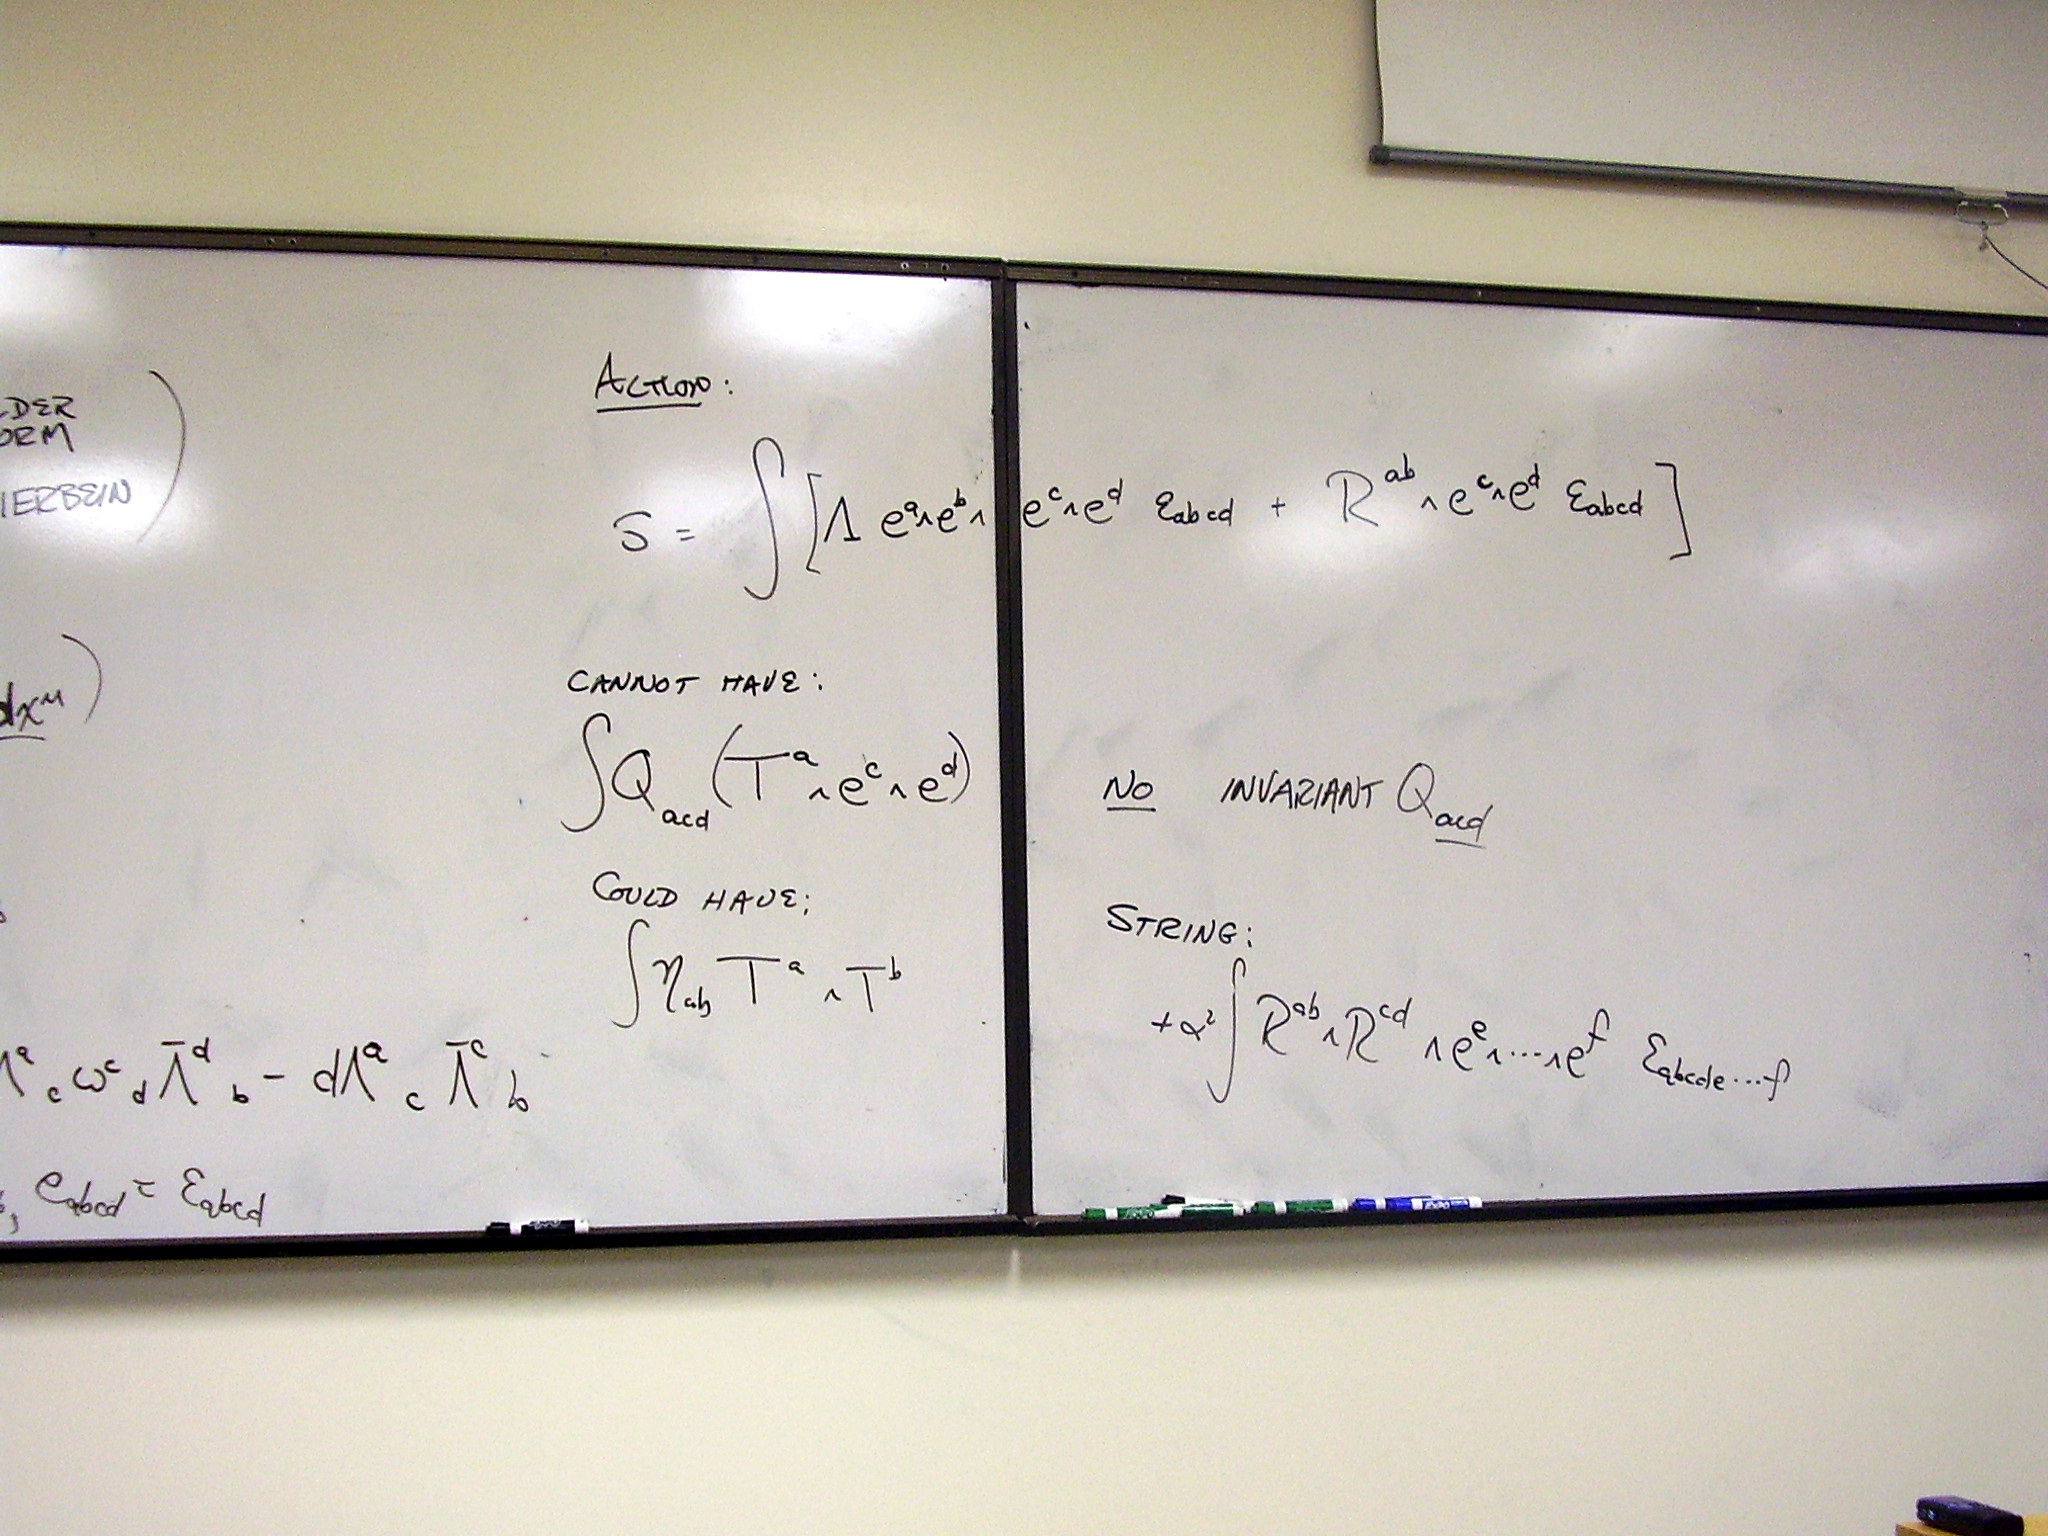 LDER
ORM
IERBEIN )
dxᵘ )
Λᵃ_c ωᶜ_d Λ̄ᵈ_b − dΛᵃ_c Λ̄ᶜ_b
, e_abcd = ε_abcd
ACTION:
S = ∫ [ Λ eᵃ∧eᵇ∧eᶜ∧eᵈ ε_abcd + Rᵃᵇ∧eᶜ∧eᵈ ε_abcd ]
CANNOT HAVE:
∫ Q_acd (Tᵃ∧eᶜ∧eᵈ) NO INVARIANT Q_acd
COULD HAVE:
∫ η_ab Tᵃ∧Tᵇ
STRING:
+α² ∫ Rᵃᵇ∧Rᶜᵈ∧eᵉ∧...∧eᶠ ε_abcde...f